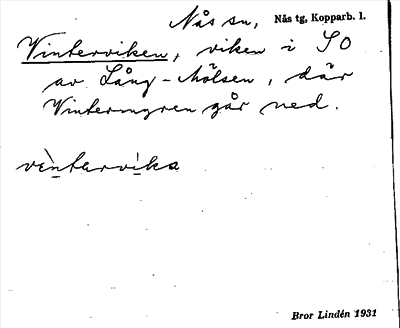 Nås sn, Nås tg, Kopparb. l.
Vinterviken, viken i SO
av Lång-Mölsen, där
Vintermyren går ned.
vèntərvi̠ka
Bror Lindén 1931